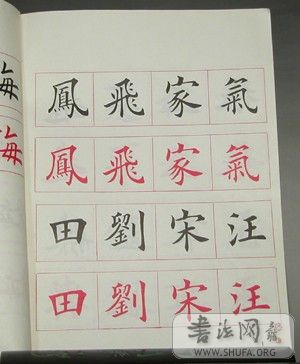 鳳飛家氣
鳳飛家氣
田劉宋汪
田劉宋汪
海
海
书法网
WWW.SHUFA.ORG